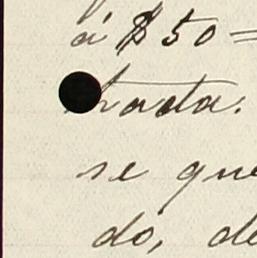 á $50=
tracta.
se que
do, de